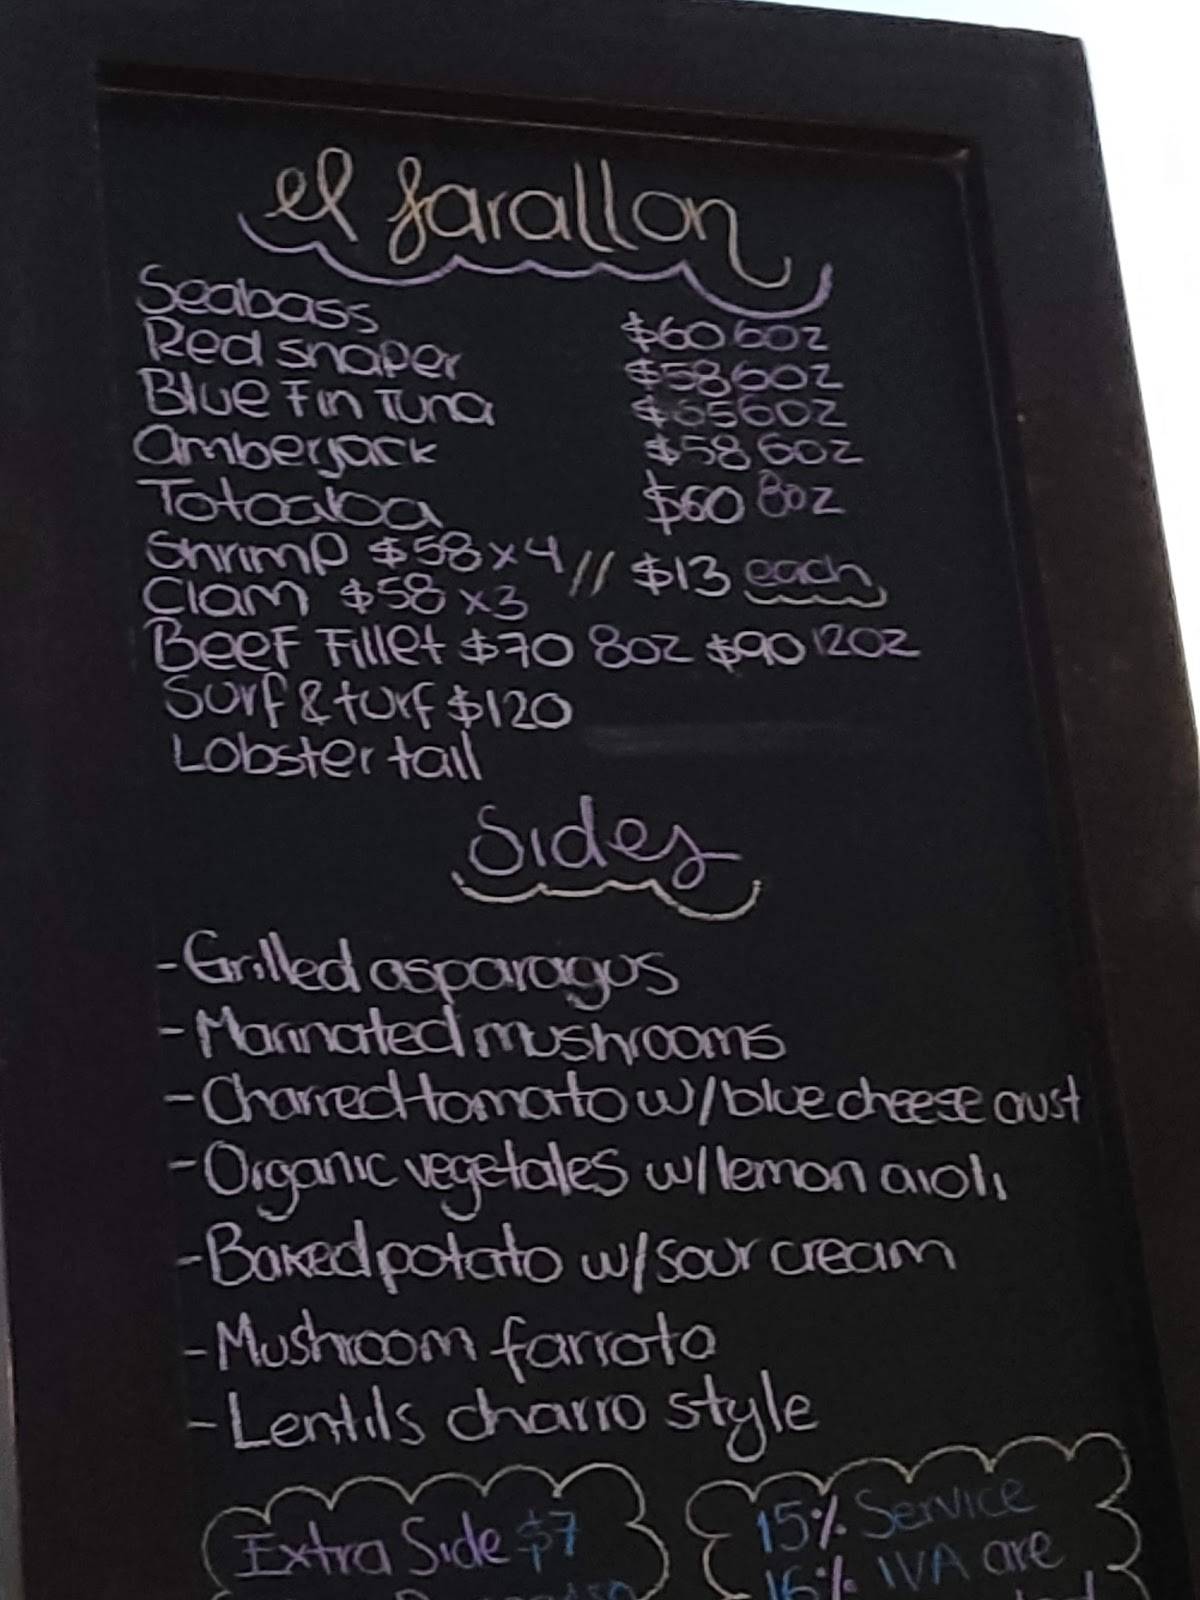 el farallon
Seabass $60 6oz
Red snaper $58 6oz
Blue Fin Tuna $65 6oz
Amberjack $58 6oz
Totoaba $60 8oz
Shrimp $58 x 4 // $13 each
Clam $58 x3
Beef Fillet $70 8oz $90 12oz
Surf & turf $120
Lobster tail
Sides
- Grilled asparagus
- Marinated mushrooms
- Charred tomato w/blue cheese crust
- Organic vegetales w/lemon aioli
- Baked potato w/sour cream
- Mushroom farroto
- Lentils charro style
Extra Side $7
15% Service
16% IVA are